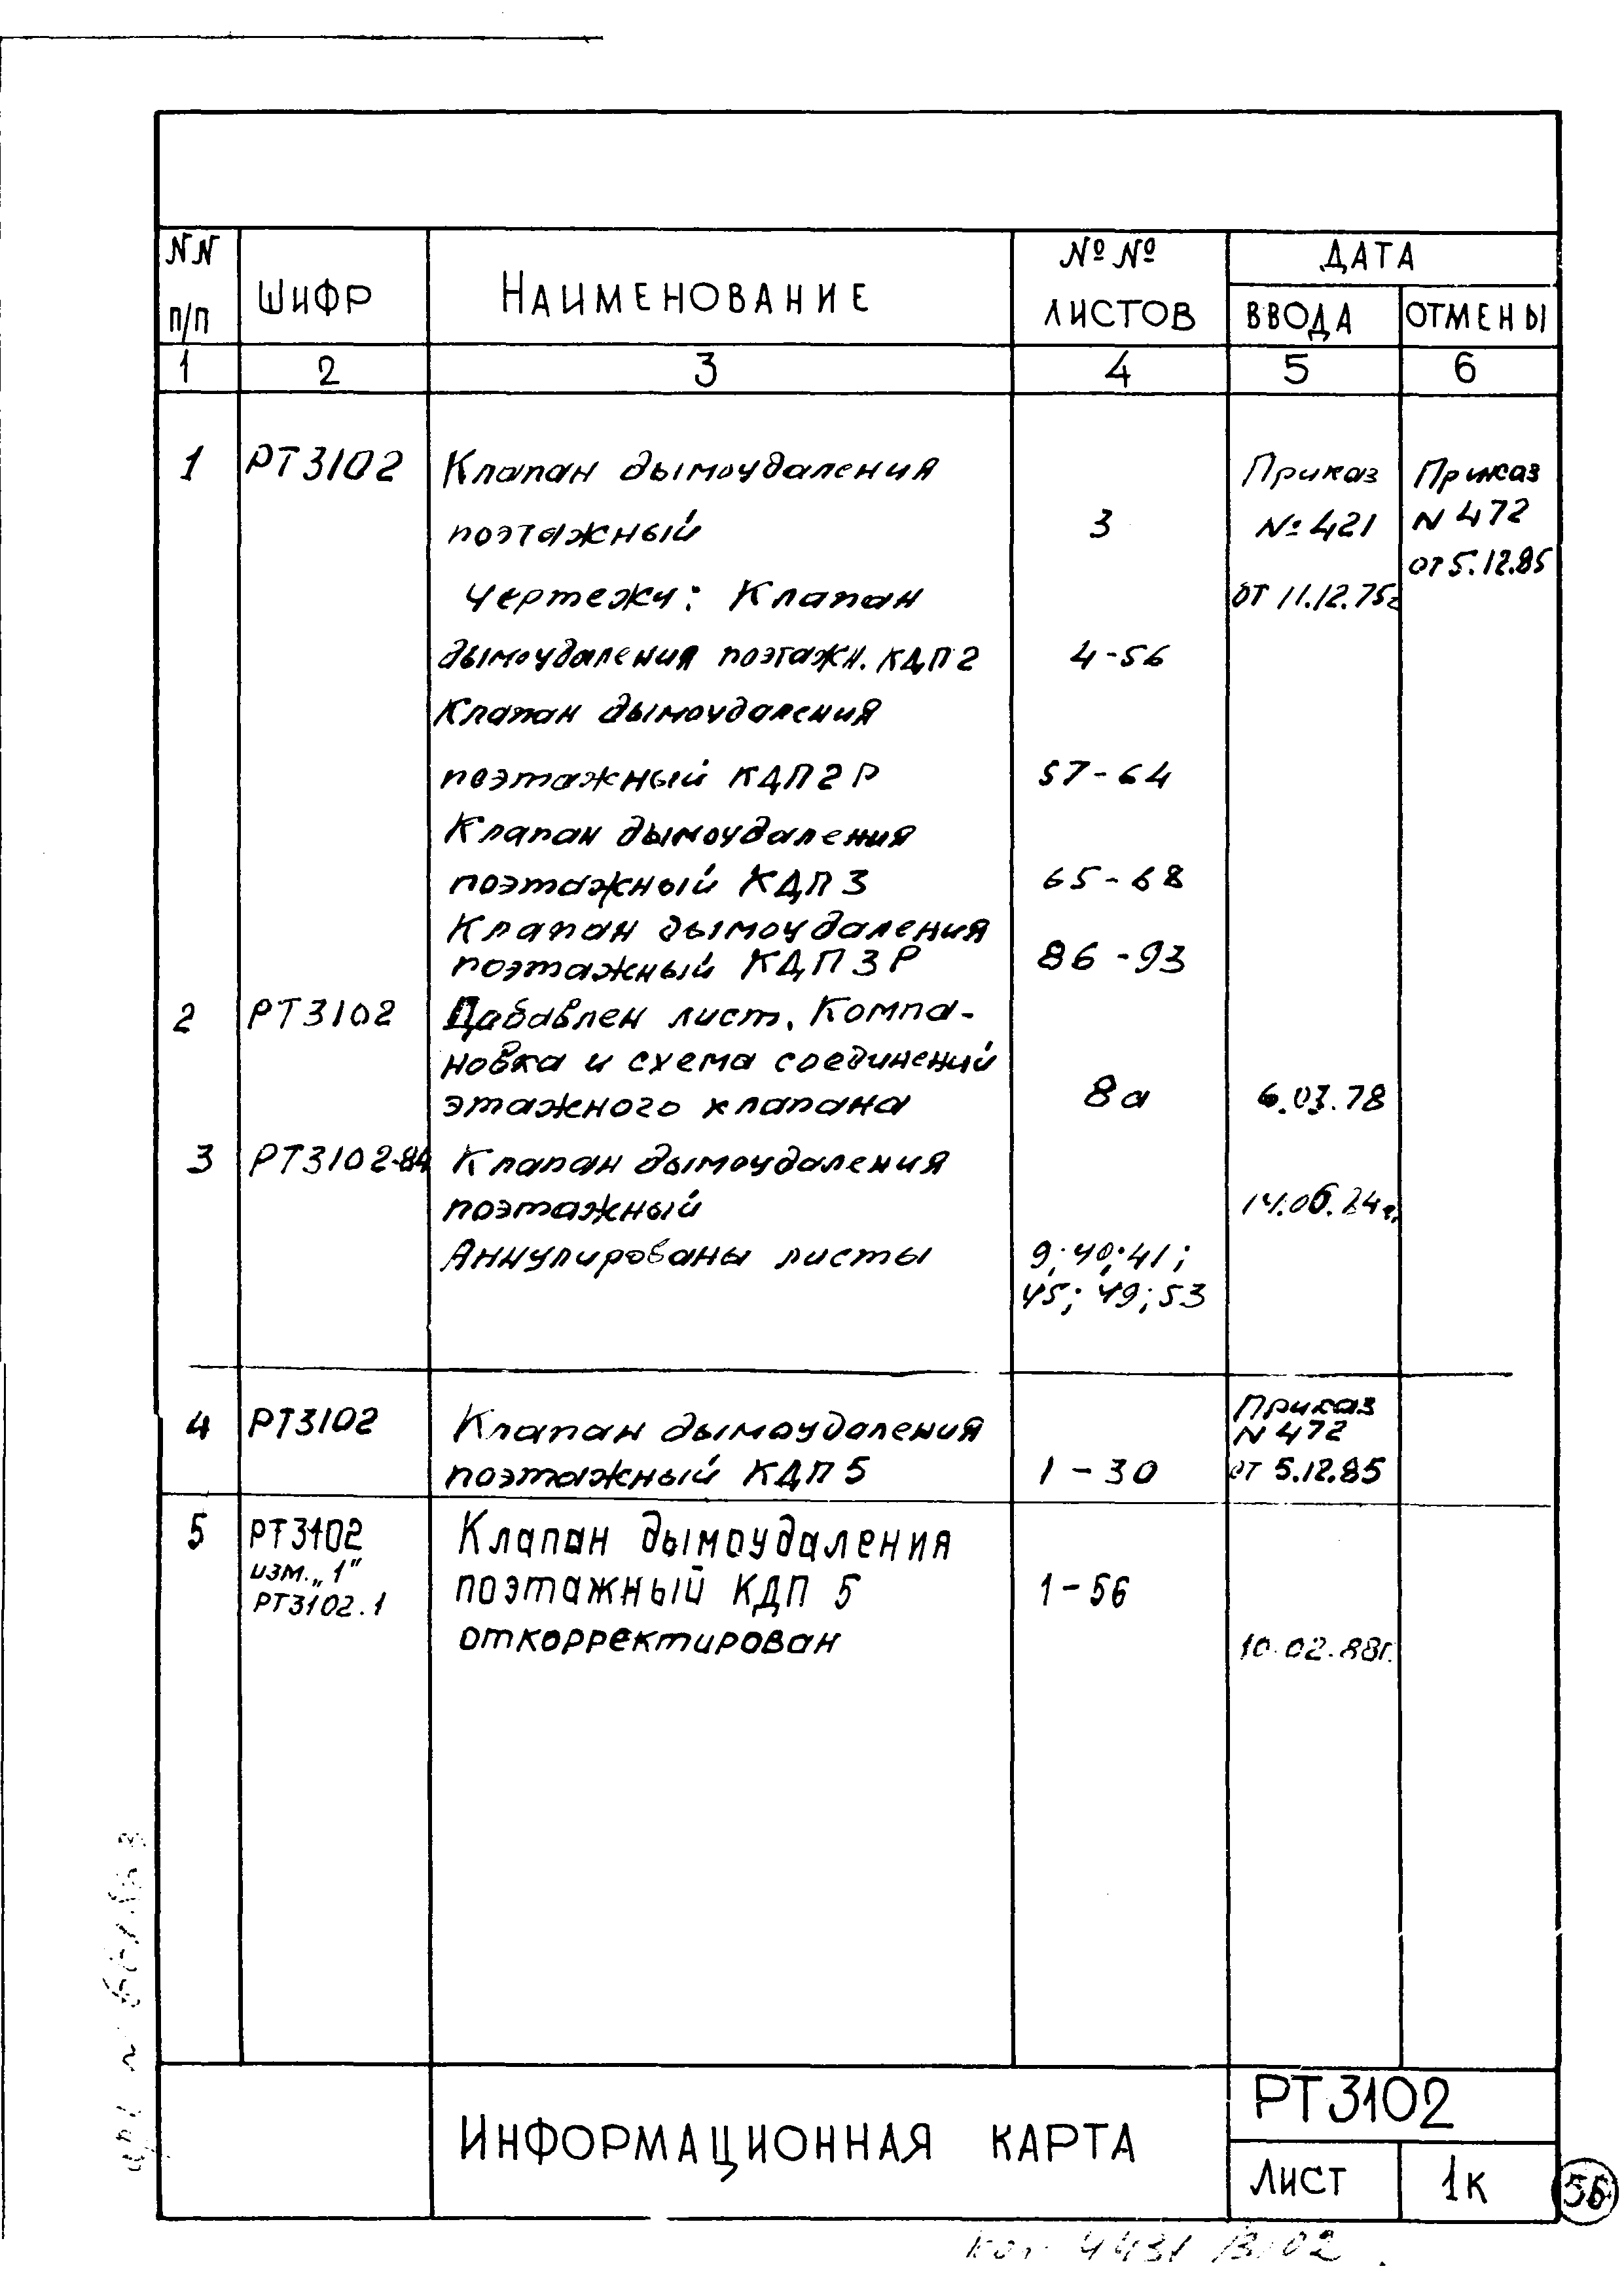 NN
п/п
Шифр
Наименование
№№
листов
Дата
ввода
отмены
1
2
3
4
5
6
1
РТ3102
Клапан дымоудаления
поэтажный
3
Приказ
№421
от 11.12.75г
Приказ
N 472
от 5.12.85
Чертежи: Клапан
дымоудаления поэтажн. КДП2
4-56
Клапан дымоудаления
поэтажный КДП2Р
57-64
Клапан дымоудаления
поэтажный КДП3
65-68
Клапан дымоудаления
поэтажный КДП3Р
86-93
2
РТ3102
Добавлен лист. Компа-
новка и схема соединений
этажного клапана
8а
6.03.78
3
РТ3102-84
Клапан дымоудаления
поэтажный
14.06.84г.
Аннулированы листы
9; 40; 41;
45; 49; 53
4
РТ3102
Клапан дымоудаления
поэтажный КДП5
1-30
Приказ
N 472
от 5.12.85
5
РТ3102
изм. „1"
РТ3102.1
Клапан дымоудаления
поэтажный КДП 5
откорректирован
1-56
10.02.88г.
Информационная карта
РТ3102
Лист
1к
56
4431